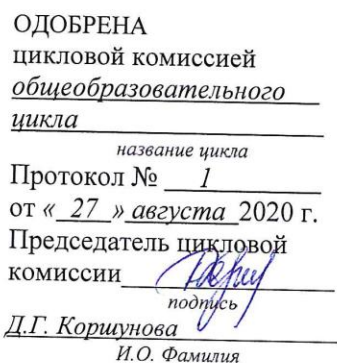 ОДОБРЕНА
цикловой комиссией
общеобразовательного
цикла
название цикла
Протокол № 1
от « 27 » августа 2020 г.
Председатель цикловой
комиссии
подпись
Д.Г. Коршунова
И.О. Фамилия